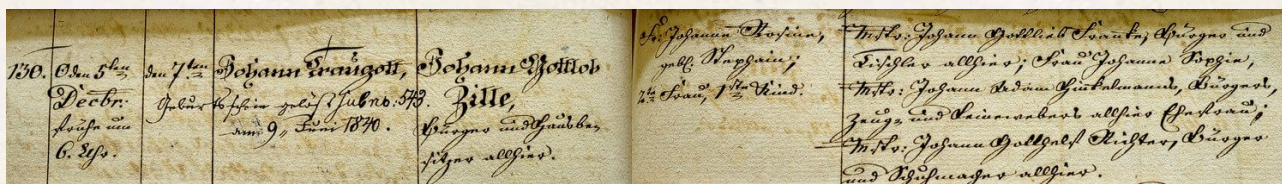 130.
☉ den 5ten
Decbr:
frühe um
6. Uhr.
den 7ten
Johann Traugott,
Geburtsschein gelöst sub no. 543.
am 9. Juni 1830.
Johann Gottlob
Zille,
Bürger und Hausbe-
sitzer allhier.
Fr: Johanne Rosine,
gebl. Stephain;
2te Frau, 1stes Kind.
Mstr: Johann Gottlieb Franke, Bürger und
Tischler allhier; Frau Johanne Sophie,
Mstr: Johann Adam Hinkelmanns, Bürgers,
Zeug- und Leinewebers allhier Ehefrau;
Mstr: Johann Gotthelf Richter, Bürger
und Schuhmacher allhier.